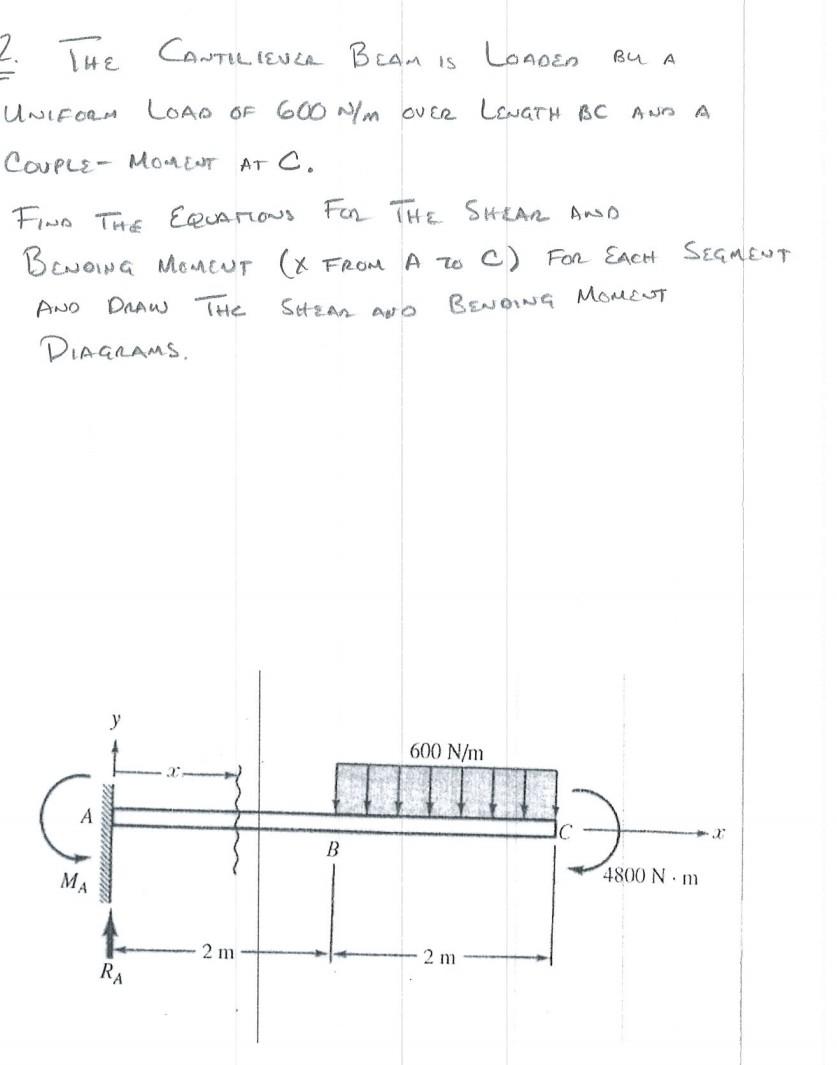 2. THE CANTILIEVER BEAM IS LOADED BY A
UNIFORM LOAD OF 600 N/M OVER LENGTH BC AND A
COUPLE- MOMENT AT C.
FIND THE EQUATIONS FOR THE SHEAR AND
BENDING MOMENT (X FROM A TO C) FOR EACH SEGMENT
AND DRAW THE SHEAR AND BENDING MOMENT
DIAGRAMS.
y
600 N/m
x
A
C
x
B
4800 N · m
MA
2 m
2 m
RA